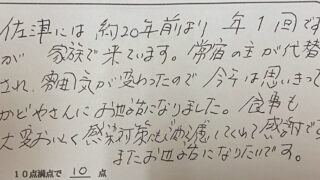 佐津には約20年前より年1回です
が 家族で来ています。常宿の主が代替
され、雰囲気が変わったので 今年は思いきって
かどやさんにお世話になりました。食事も
大変おいしく感染対策にもご配慮してくれて感謝です
またお世話になりたいです。
10点満点で 10 点